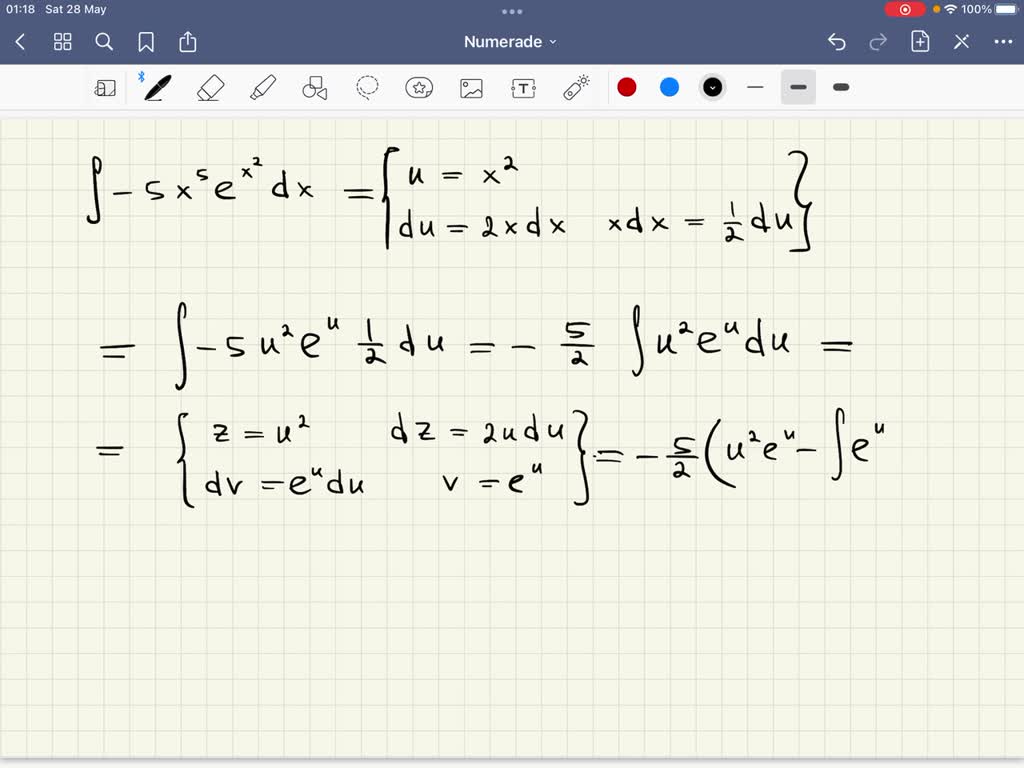 01:18 Sat 28 May 100%
Numerade
T
∫ -5x⁵e^{x²}dx = { u = x²
du = 2xdx xdx = 1/2 du }
= ∫ -5u²e^u 1/2 du = - 5/2 ∫ u²e^u du =
= { z = u² dz = 2udu
dv = e^u du v = e^u } = - 5/2 ( u²e^u - ∫ e^u